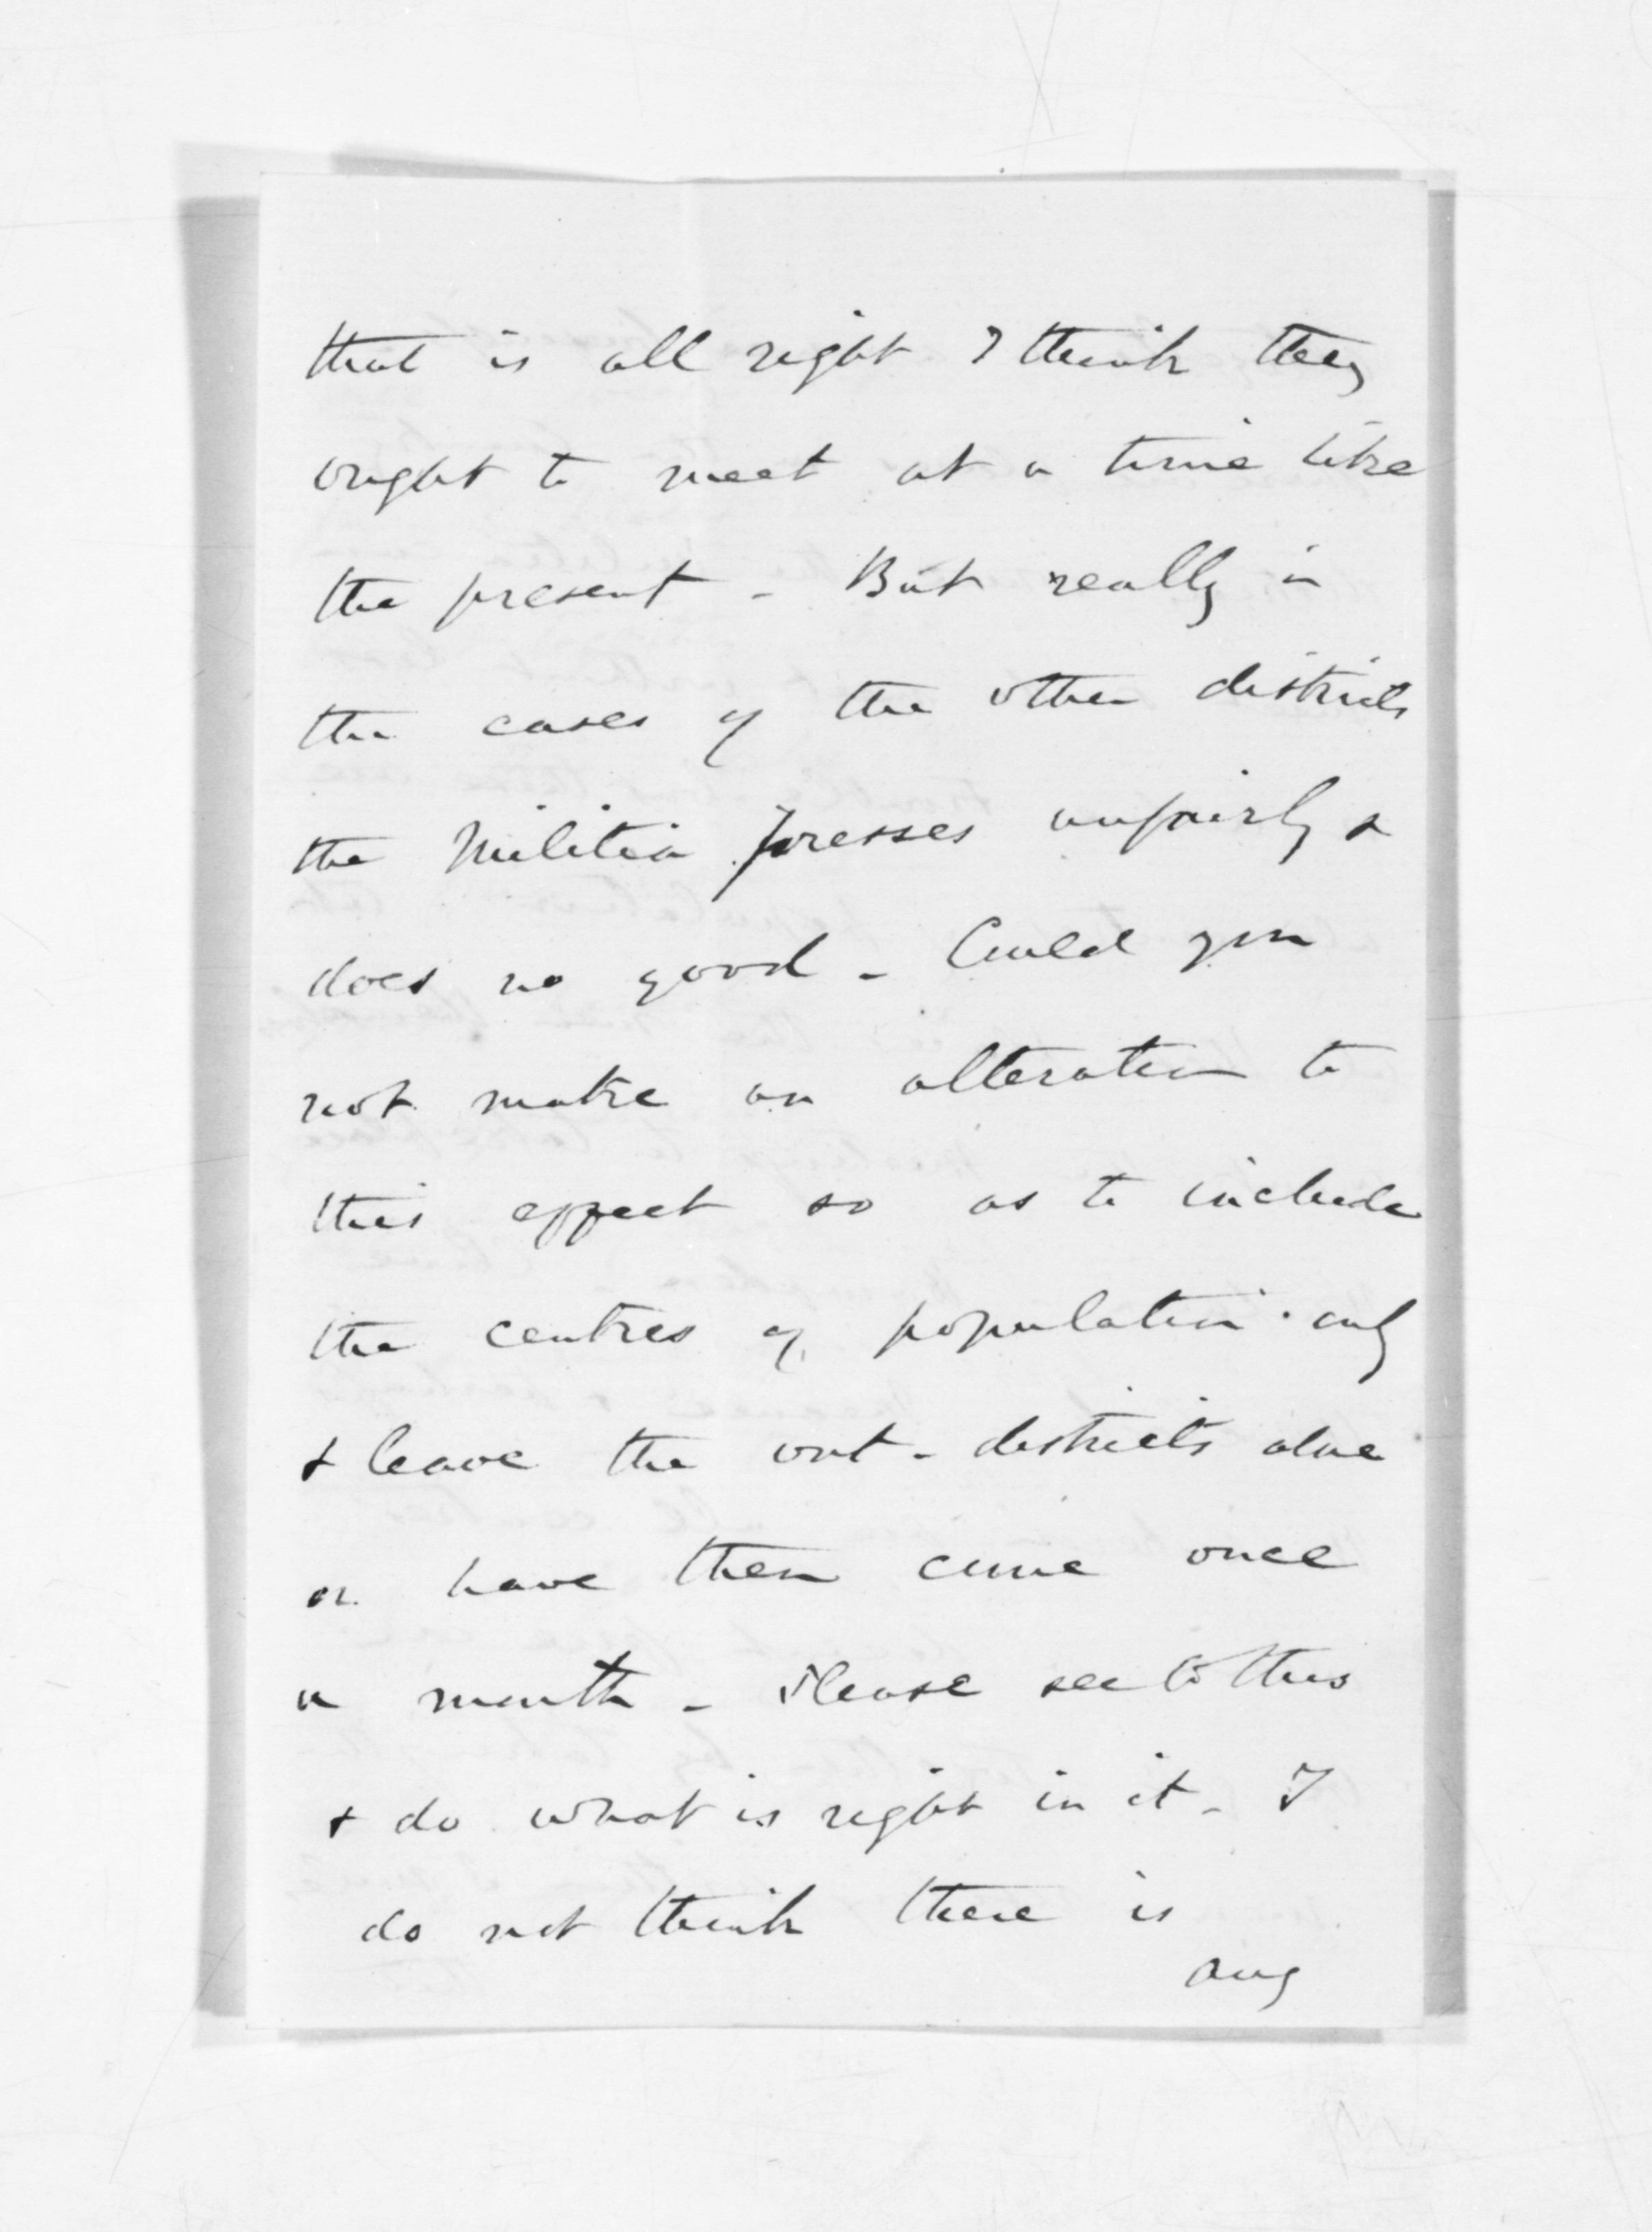 that is all right I think they
ought to meet at a time like
the present - But really in
the cases of the other districts
the Militia presses unfairly &
does no good - Could you
not make an alteration to
this effect so as to include
the centres of population only
& leave the out-districts alone
or have them come once
a month - Please see to this
& do what is right in it - I
do not think there is
any